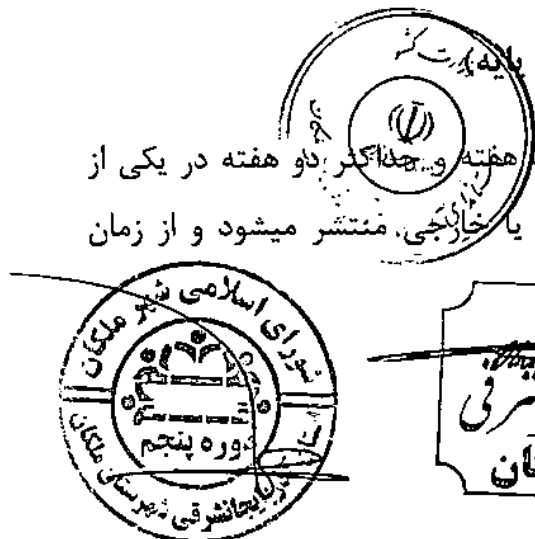 پایه)
هفته و حداکثر دو هفته در یکی از
یا خارجی منتشر میشود و از زمان
شورای اسلامی شهر ملکان
دوره پنجم
استان آذربایجانشرقی شهرستان ملکان
شرقی